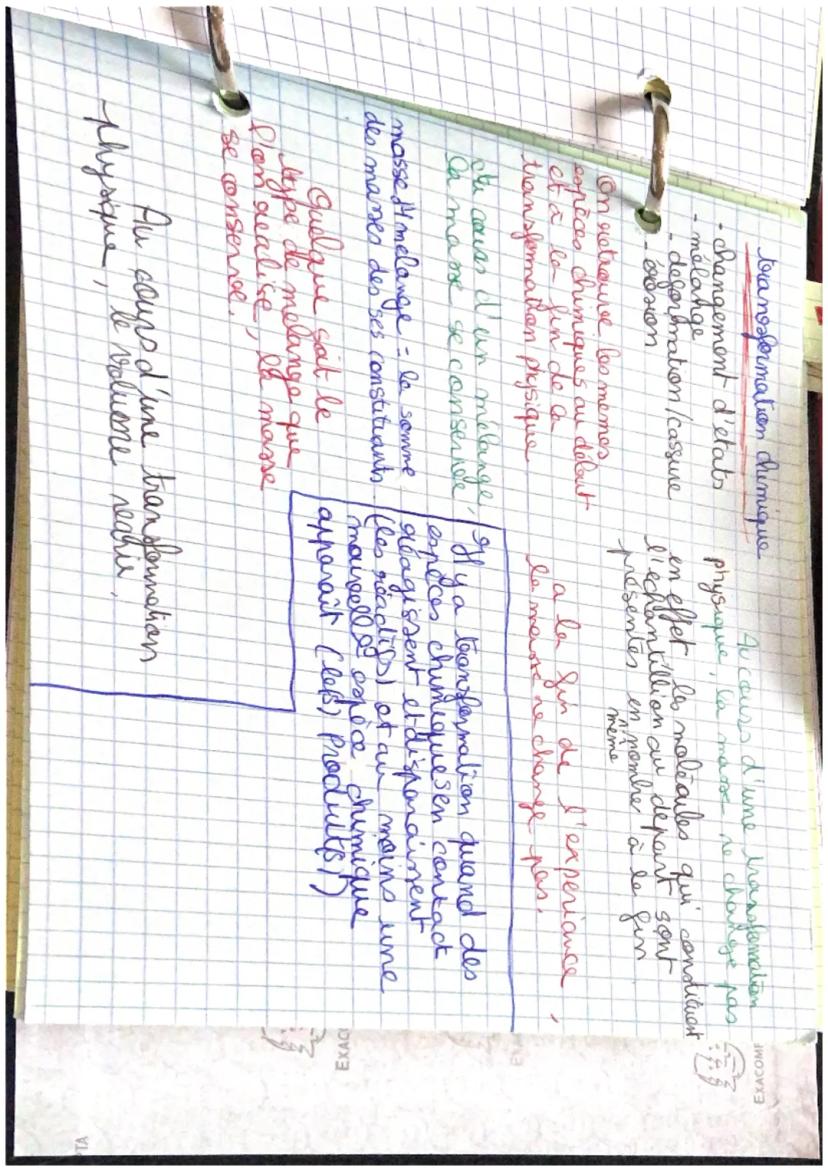 transformation chimique
- changement d'etats
- mélange
- déformation/cassure
- érosion
On retrouve les memes
espèces chimiques au début
et à la fin de la
transformation physique
Au cours d'un mélange,
la masse se conserve
masse d'1 mélange = la somme
des masses des ses constituants
Quelque soit le
type de mélange que
l'on réalise, la masse
se conserve.
Au cours d'une transformation
physique, le volume
Au cours d'une transformation
physique, la masse ne change pas
en effet les molécules qui constituent
l'echantillion au départ sont
présentes en nombre à la fin
même
a la fin de l'experiance,
la masse ne change pas.
Il y a transformation quand des
espèces chimiques en contact
réagissent et disparaissent
(les réactifs) et au moins une
nouvelle espèce chimique
apparaît (le(s) Produit(s))
EXACOMP
EXAC
TA